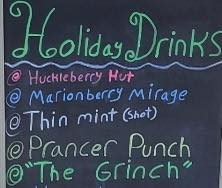 Holiday Drinks
@ Huckleberry Hut
@ Marionberry Mirage
@ Thin mint (shot)
@ Prancer Punch
@ "The Grinch"